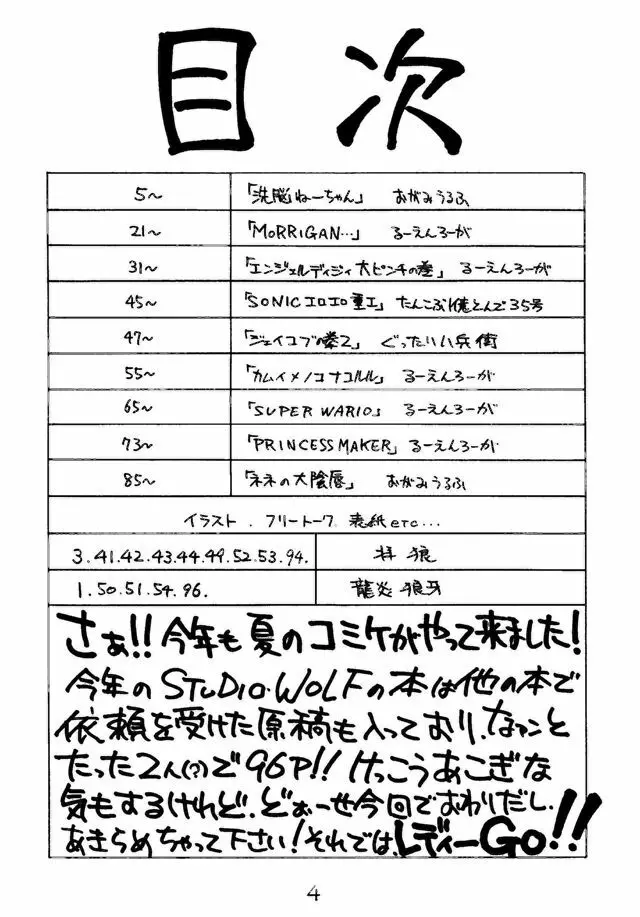 目次
5〜 「洗脳ねーちゃん」 おがみうるふ
21〜 「MORRIGAN…」 るーえんろーが
31〜 「エンジェルディジィ大ピンチの巻」 るーえんろーが
45〜 「SONICエロエロ重工」 たんこぶ1億とんで35号
47〜 「ジェイコブの拳2」 ぐったいハ兵衛
55〜 「カムイメノコナコルル」 るーえんろーが
65〜 「SUPER WARIO」 るーえんろーが
73〜 「PRINCESS MAKER」 るーえんろーが
85〜 「ネネの大陰唇」 おがみうるふ
イラスト.フリートーク 表紙etc…
3.41.42.43.44.49.52.53.94. 拝 狼
1.50.51.54.96. 龍炎 狼牙
さぁ!!今年も夏のコミケがやって来ました!
今年のSTUDIO・WOLFの本は他の本で
依頼を受けた原稿も入っており、なァンと
たった2人(?)で96P!!けっこうあこぎな
気もするけれど、どぉーせ今回でおわりだし、
あきらめちゃって下さい!それでは、レディーGo!!
4